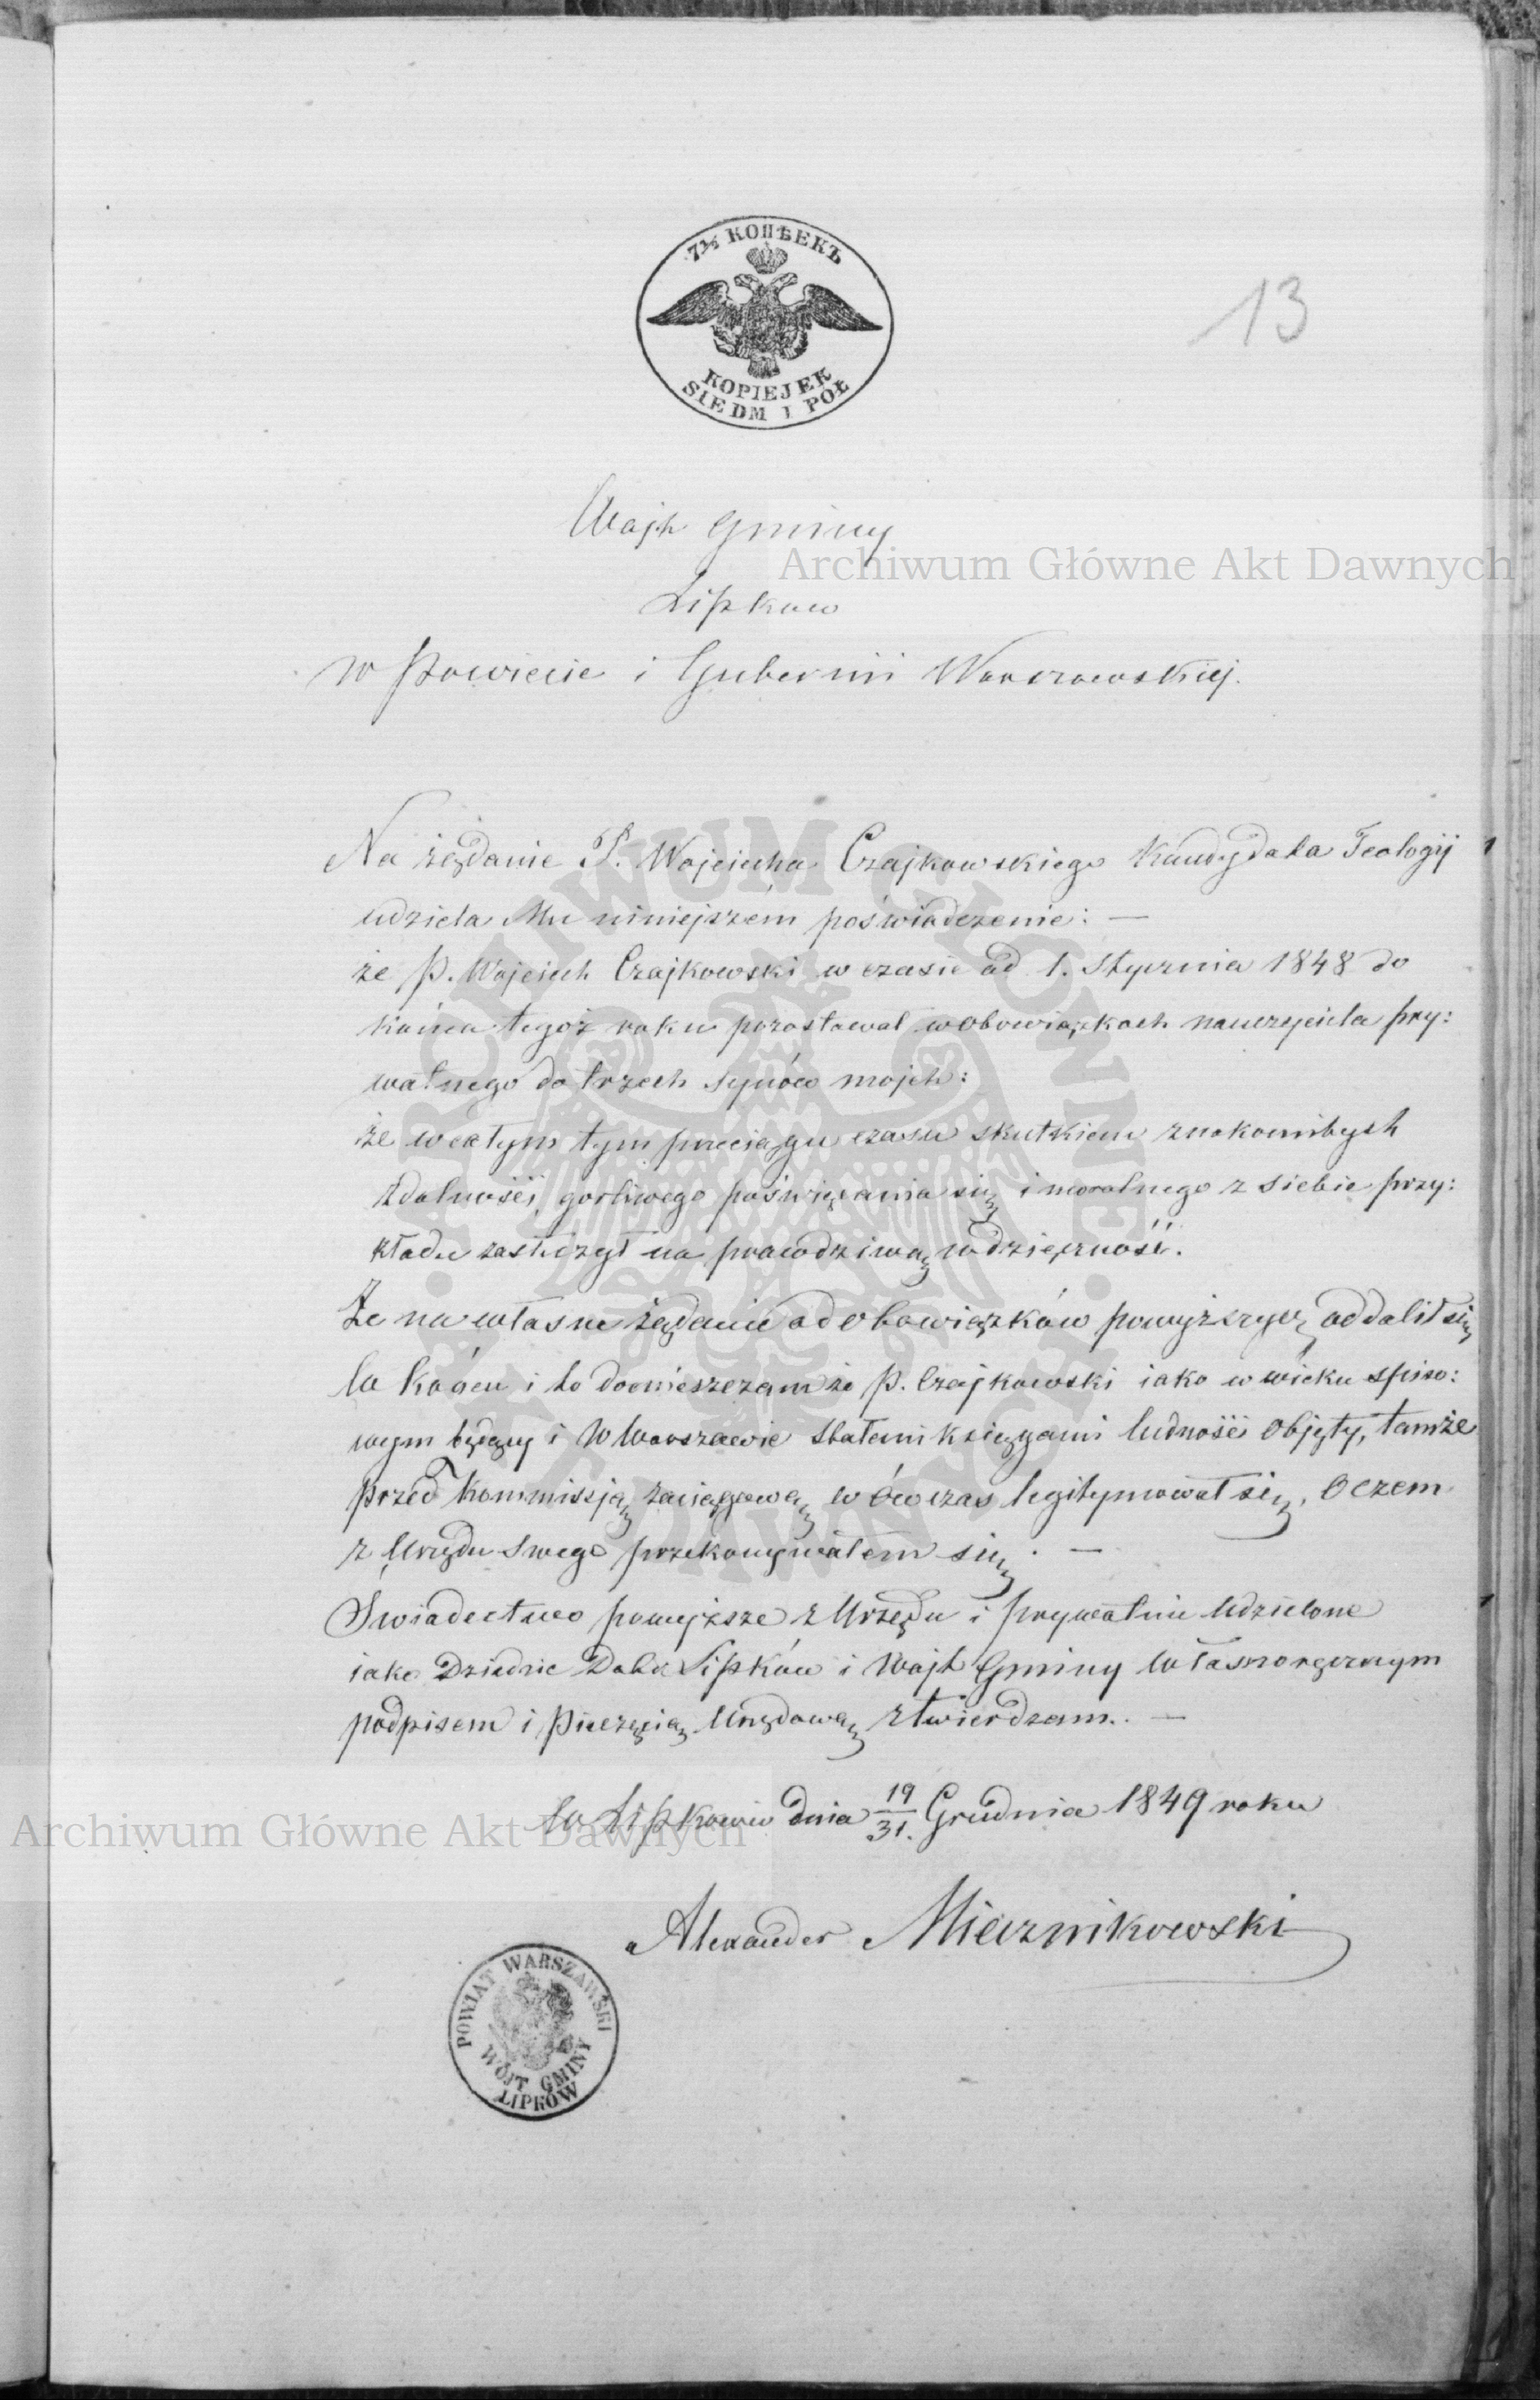 7½ КОПѢЕКЪ
KOPIEJEK
SIEDM I PÓŁ
13
Wojt Gminy
Lipkow
w Powiecie i Gubernii Warszawskiej.
Na żądanie P. Wojciecha Czajkowskiego Kandydata Teologij
udziela Mu niniejszém poświadczenie: —
że P. Wojciech Czajkowski w czasie od 1. Stycznia 1848 do
końca tegoż roku pozostawał w obowiązkach nauczyciela pry:
watnego do trzech synów mojch:
że w całym tym przeciągu czasu skutkiem znakomitych
zdolności, gorliwego poświęcania się i moralnego z siebie przy:
kładu zasłużył na prawdziwą wdzięczność.
Że na własne żądanie od obowiązków powyższych oddalił się
W końcu i to domieszczam że P. Czajkowski iako w wieku spiso:
wym będący i w Warszawie stałemi księgami ludności objęty, tamże
przed Kommissją zaciągową w ówczas legitymował się, o czem
z Urzędu swego przekonywałem się. —
Swiadectwo powyższe z Urzędu i prywatnie udzielone
iako Dziedzic Dobr Lipków i Wojt Gminy własnoręcznym
podpisem i pieczęcią Urzędową ztwierdzam. —
w Lipkowie dnia 19/31. Grudnia 1849 roku
Alexander Miecznikowski
POWIAT WARSZAWSKI
WÓJT GMINY
LIPKÓW
Archiwum Główne Akt Dawnych
Archiwum Główne Akt Dawnych
ARCHIWUM GŁÓWNE AKT DAWNYCH